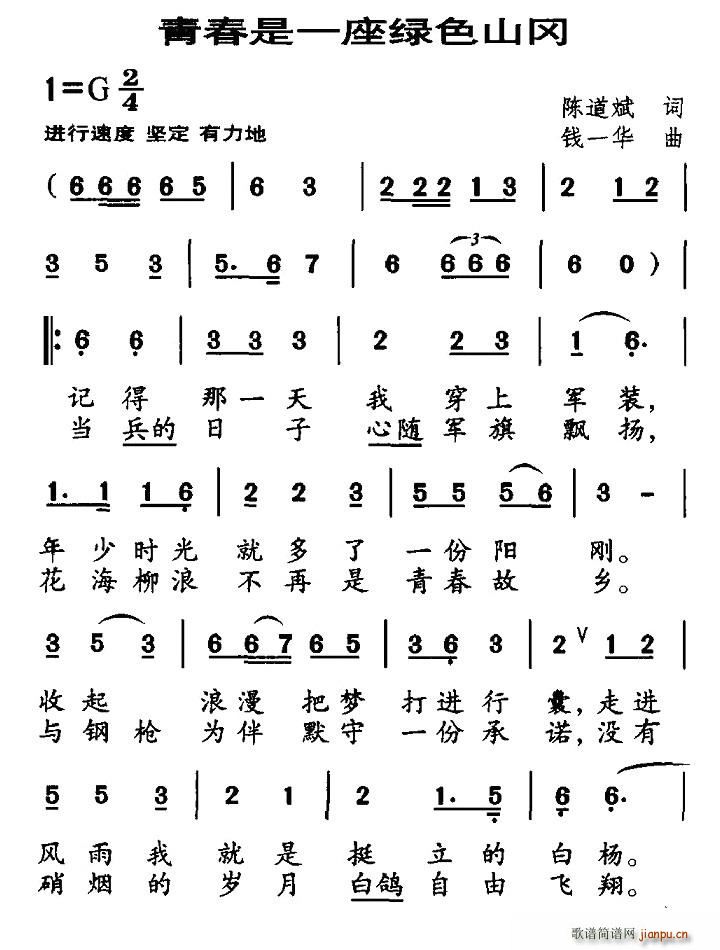 青春是一座绿色山冈
1=G 2/4
陈道斌 词
进行速度 坚定 有力地
钱一华 曲
( 6 6 6 6 5 | 6 3 | 2 2 2 1 3 | 2 1 2 |
3 5 3 | 5. 6 7 | 6 6 6 6 | 6 0 ) |
3
|: 6 6 | 3 3 3 | 2 2 3 | 1 6. |
记得那一天我穿上军装,
当兵的日子心随军旗飘扬,
1. 1 1 6 | 2 2 3 | 5 5 5 6 | 3 - |
年少时光就多了一份阳刚。
花海柳浪不再是青春故乡。
3 5 3 | 6 6 7 6 5 | 3 6 3 | 2 V 1 2 |
收起浪漫把梦打进行囊,走进
与钢枪为伴默守一份承诺,没有
5 5 3 | 2 1 | 2 2 | 1. 5 | 6 6. |
风雨我就是挺立的白杨。
硝烟的岁月白鸽自由飞翔。
歌谱简谱网
jianpu.cn